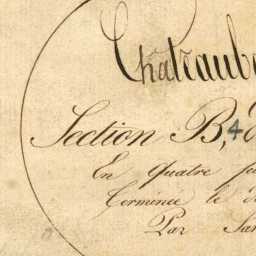 Chateaub
Section B, 4
En quatre
Terminée le
Par